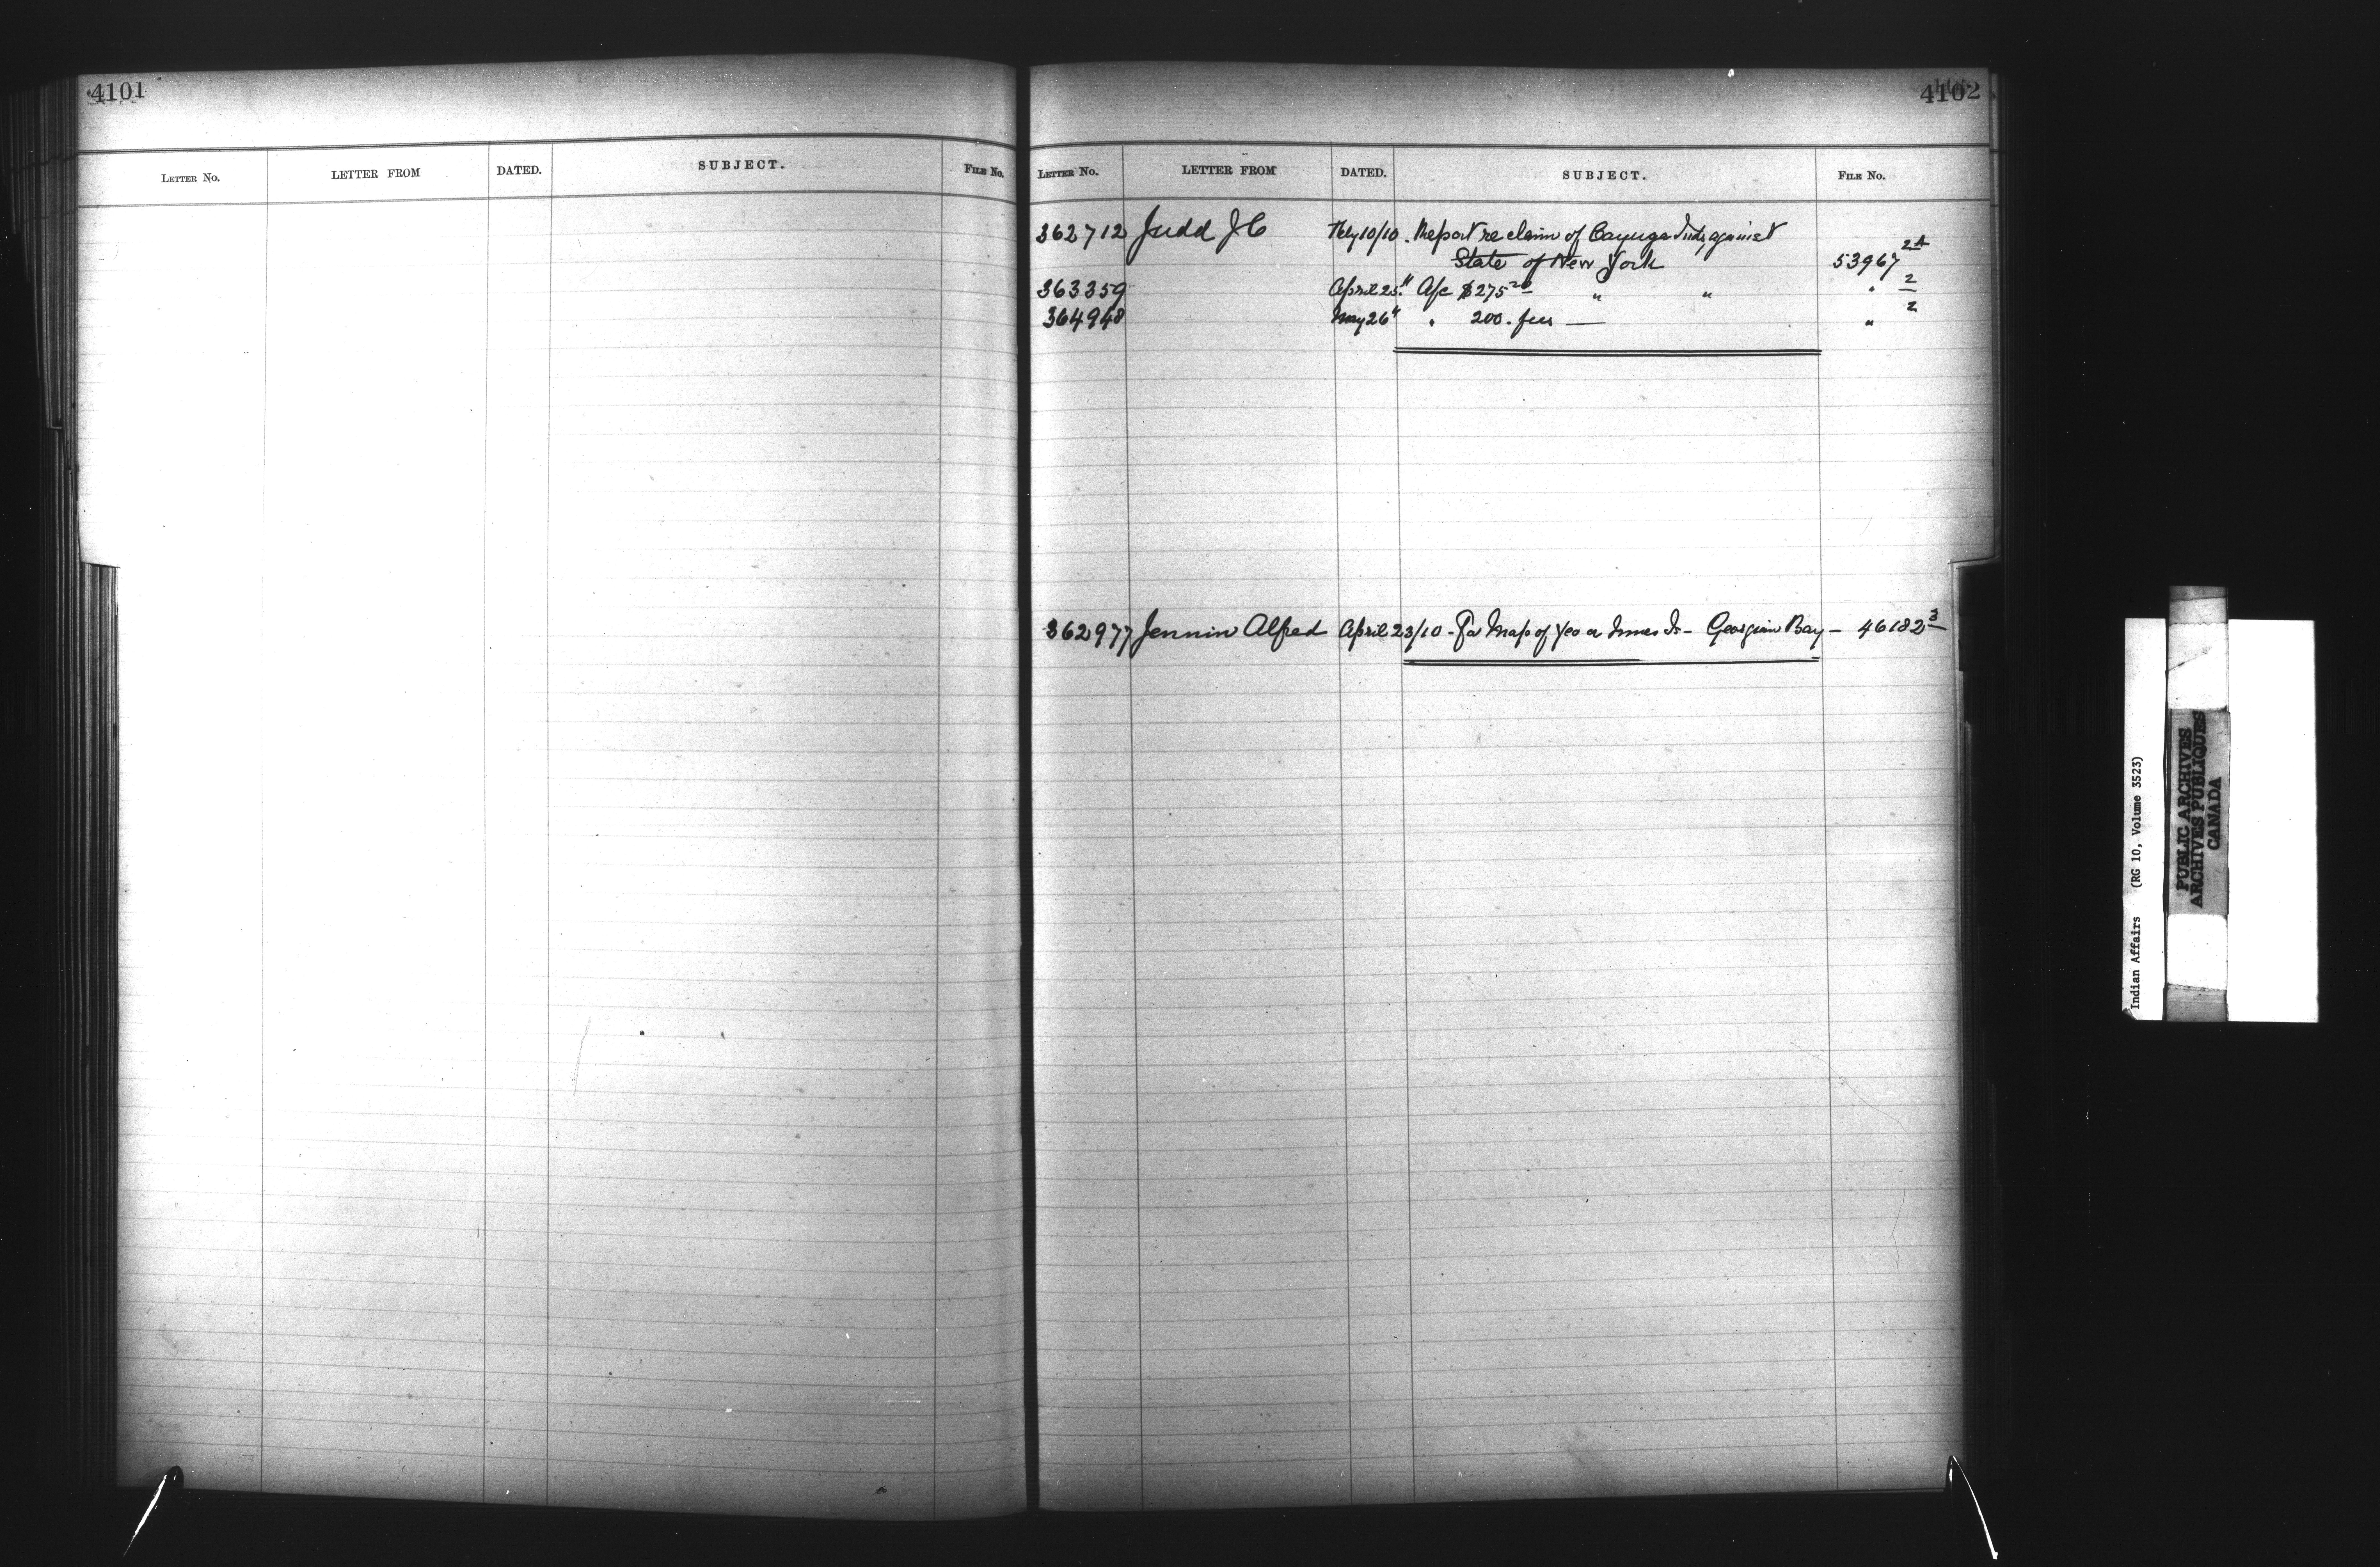 4101
LETTER NO. LETTER FROM DATED. SUBJECT. FILE NO.
4102
LETTER NO. LETTER FROM DATED. SUBJECT. FILE NO.
362712 Judd J C Feby 10/10. Report re claim of Cayuga Inds against
State of New York 53967 2A
363359 April 25 " A/c $275 20 " " " 2
364948 May 26 " " 200. fees — " 2
362977 Jennin Alfred April 23/10 - For Map of Yeo or Innes Is - Georgian Bay - 46182 3
Indian Affairs (RG 10, Volume 3523)
PUBLIC ARCHIVES
ARCHIVES PUBLIQUES
CANADA